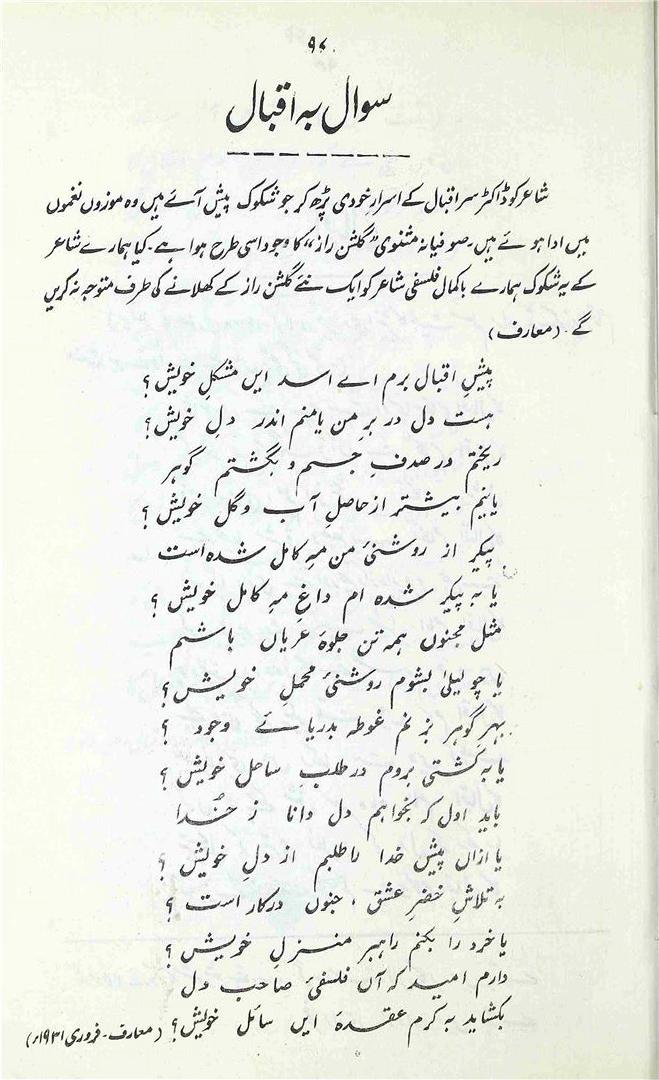 ۹۷
سوال بہ اقبال
شاعر کو ڈاکٹر سر اقبال کے اسرارِ خودی پڑھ کر جو شکوک پیش آئے ہیں وہ موزوں نغموں
میں ادا ہوئے ہیں۔ صوفیانہ مثنوی ”گلشن راز“ کا وجود اسی طرح ہوا ہے۔ کیا ہمارے شاعر
کے یہ شکوک ہمارے باکمال فلسفی شاعر کو ایک نئے گلشن راز کے کھلانے کی طرف متوجہ نہ کریں
گے۔ (معارف)
پیشِ اقبال برم اے اسد ایں مشکلِ خویش؟
ہست دل در برِ من یا منم اندر دلِ خویش؟
ریختم در صدفِ جسم و بگشتم گوہر
یا نیم بیشتر از حاصلِ آب و گل خویش؟
پیکر از روشنئ من مہِ کامل شدہ است
یا بہ پیکر شدہ ام داغِ مہِ کامل خویش؟
مثل مجنوں ہمہ تن جلوۂ عریاں باشم
یا چو لیلیٰ بشوم روشنئ محملِ خویش؟
بہرِ گوہر بزنم غوطہ بدریائے وجود؟
یا بہ کشتی بروم در طلبِ ساحل خویش؟
باید اول کہ بخواہم دل دانا ز خدا
یا ازاں پیش خدا را طلبم از دلِ خویش؟
بہ تلاشِ خضرِ عشق، جنوں درکار است؟
یا خرد را بکنم راہبر منزلِ خویش؟
دارم امید کہ آں فلسفئ صاحب دل
بکشاید بہ کرم عقدۂ ایں سائل خویش؟ (معارف۔ فروری ۱۹۳۱ء)